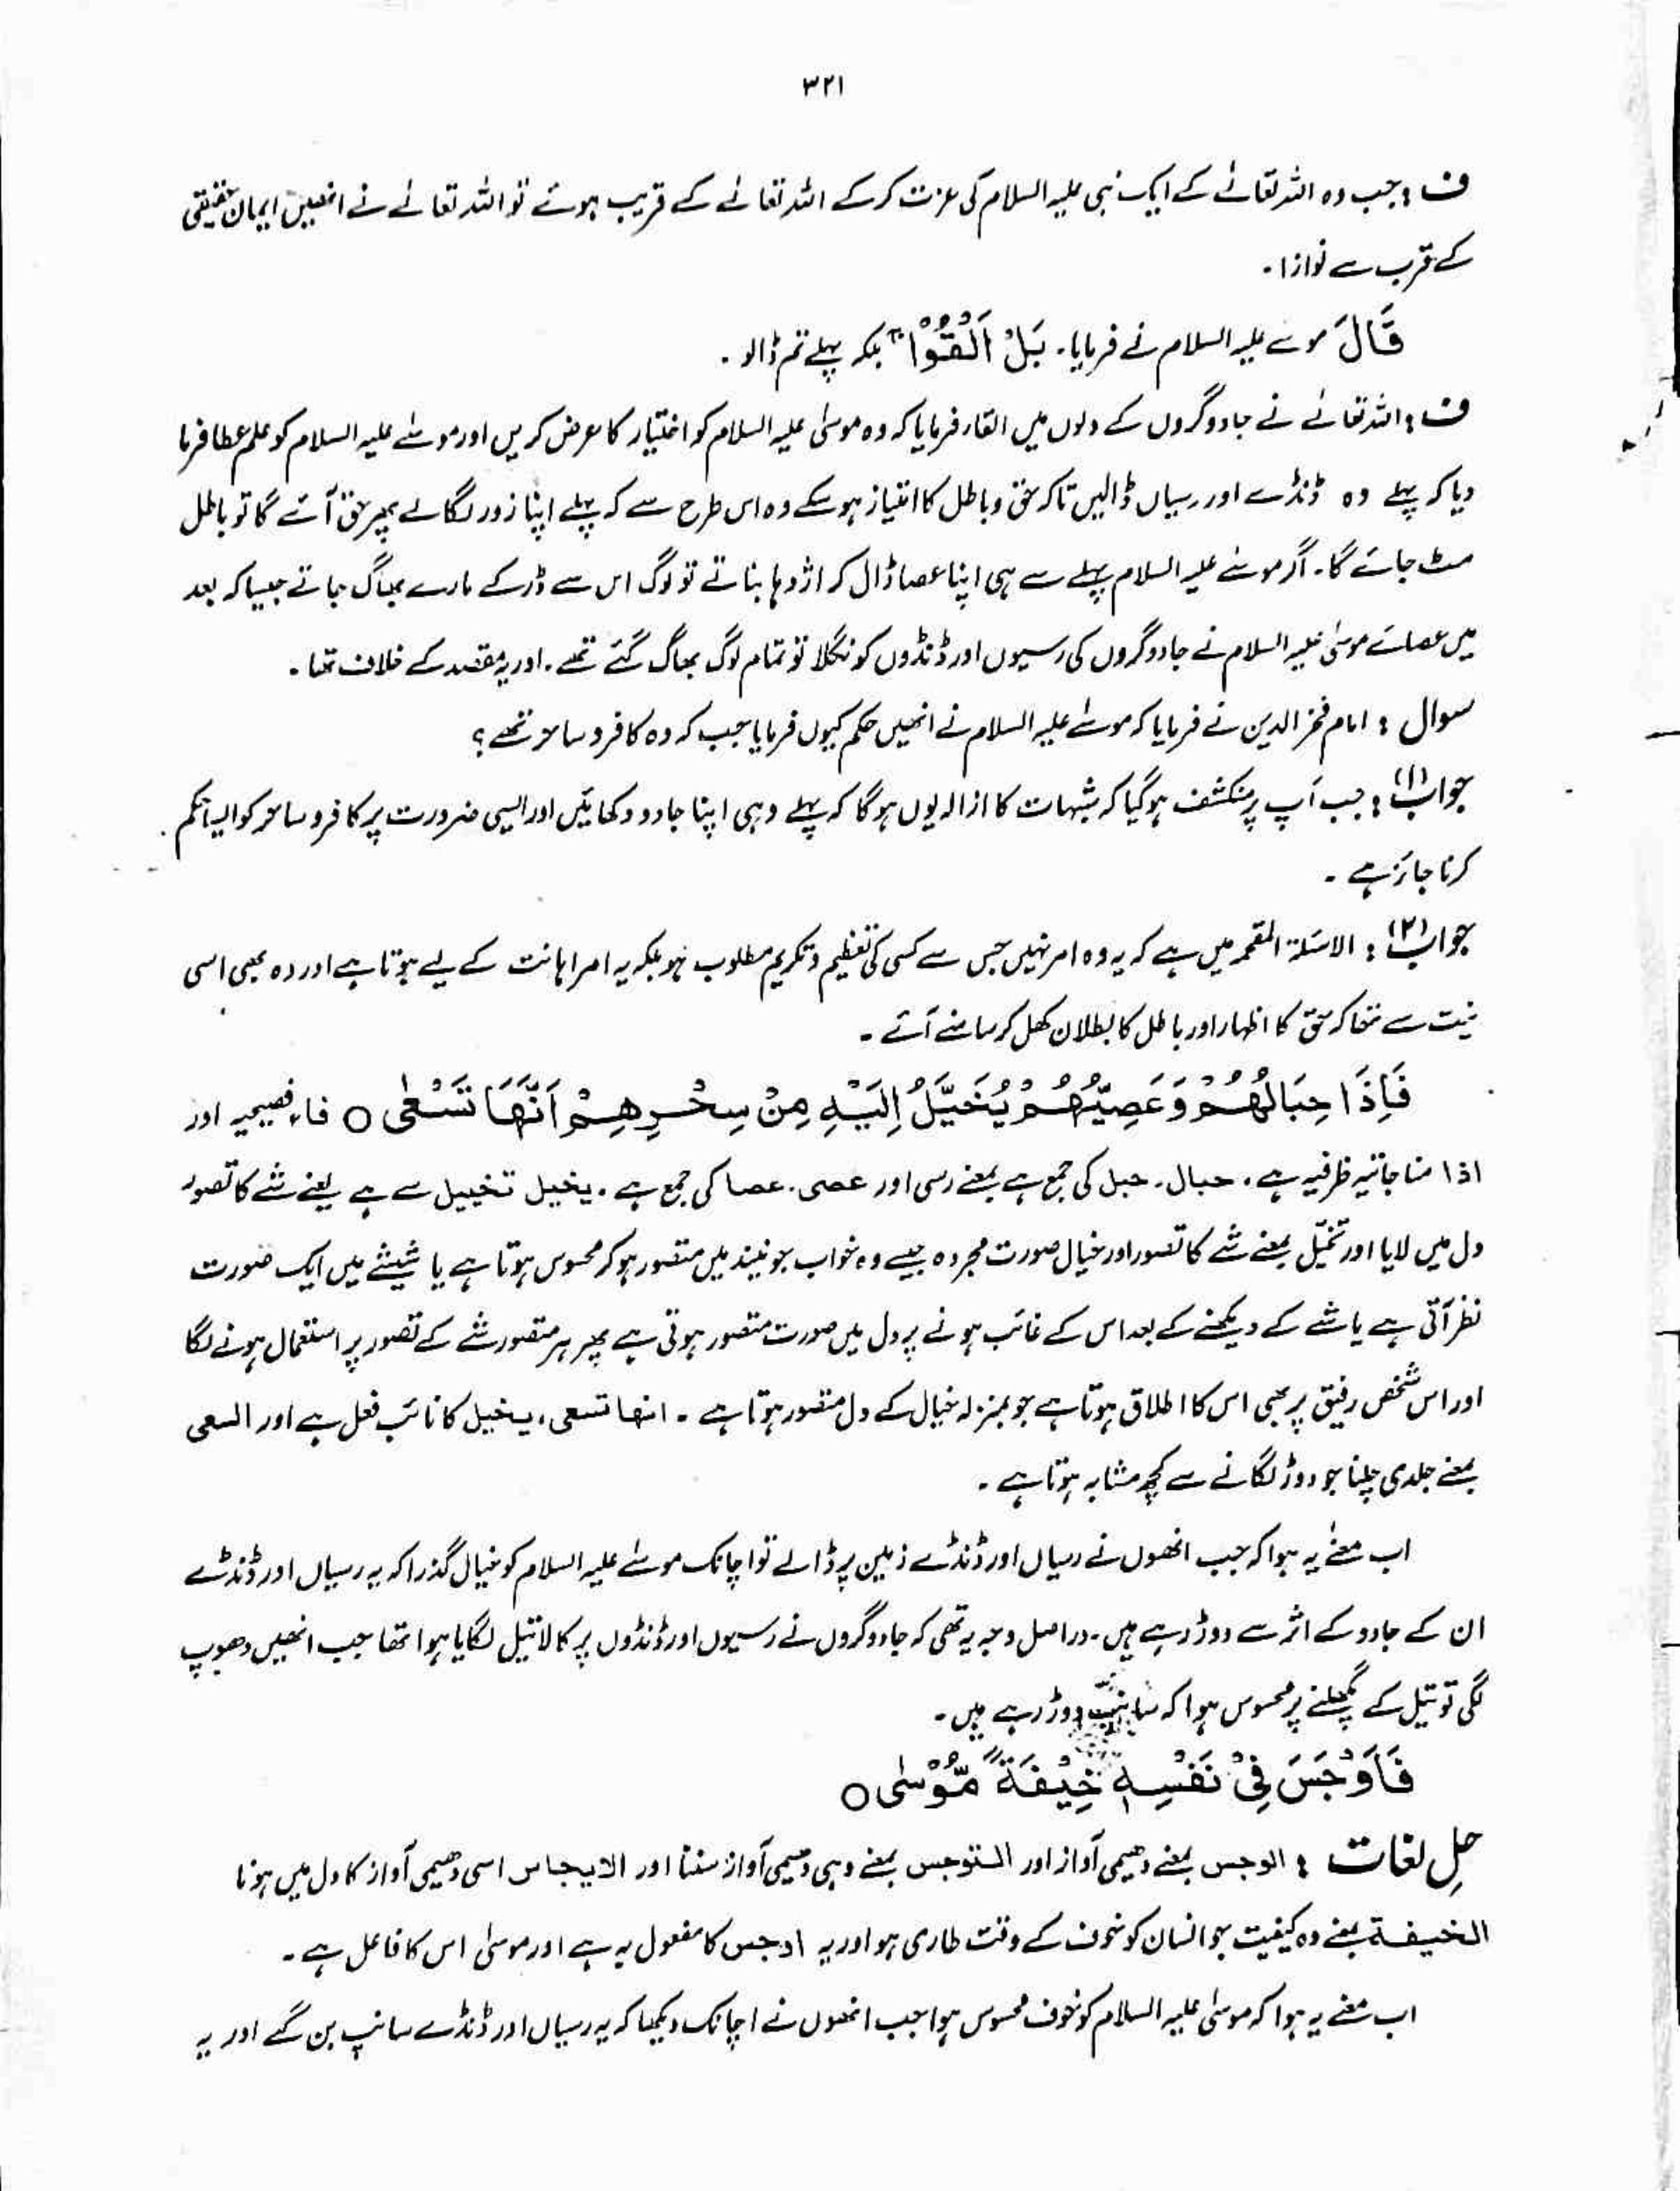 ۳۲۱
ف : جب وہ اللہ تعالےٰ کے ایک نبی علیہ السلام کی عزت کر کے اللہ تعالےٰ کے قریب ہوئے تو اللہ تعالےٰ نے انھیں ایمان حقیقی
کے قرب سے نوازا۔
قَالَ موسےٰ علیہ السلام نے فرمایا۔ بَلْ اَلْقُوْا ۚ بلکہ پہلے تم ڈالو ۔
ف : اللہ تعالےٰ نے جادوگروں کے دلوں میں القاء فرمایا کہ وہ موسیٰ علیہ السلام کو اختیار کا عرض کریں اور موسےٰ علیہ السلام کو علم عطا فرما
دیا کہ پہلے وہ ڈنڈے اور رسیاں ڈالیں تاکہ حق و باطل کا امتیاز ہو سکے وہ اس طرح سے کہ پہلے اپنا زور لگالے پھر حق آئے گا تو باطل
مٹ جائے گا۔ اگر موسےٰ علیہ السلام پہلے سے ہی اپنا عصا ڈال کر اژدہا بناتے تو لوگ اس سے ڈر کے مارے بھاگ جاتے جیسا کہ بعد
میں عصائے موسیٰ علیہ السلام نے جادوگروں کی رسیوں اور ڈنڈوں کو نگلا تو تمام لوگ بھاگ گئے تھے ۔ اور یہ مقصد کے خلاف تھا ۔
سوال : امام فخر الدین نے فرمایا کہ موسےٰ علیہ السلام نے انھیں حکم کیوں فرمایا جب کہ وہ کافر و ساحر تھے ؟
جواب (۱) : جب آپ پر منکشف ہو گیا کہ شبہات کا ازالہ یوں ہوگا کہ پہلے وہی اپنا جادو دکھائیں اور ایسی ضرورت پر کافر و ساحر کو ایسا حکم
کرنا جائز ہے ۔
جواب (۲) : الاسئلۃ المقحمہ میں ہے کہ یہ وہ امر نہیں جس سے کسی کی تعظیم و تکریم مطلوب ہو بلکہ یہ امر اہانت کے لیے ہوتا ہے اور وہ بھی اسی
نیت سے تھا کہ حق کا اظہار اور باطل کا بطلان کھل کر سامنے آئے ۔
فَاِذَا حِبَالُهُمْ وَعَصِيُّهُمْ يُخَيَّلُ اِلَيْهِ مِنْ سِحْرِهِمْ اَنَّهَا تَسْعٰى ○ فاء فصیحیہ اور
اذا مناجاتیہ ظرفیہ ہے ۔ حبال ۔ حبل کی جمع ہے بمعنے رسی اور عصی ۔ عصا کی جمع ہے ۔ یخیل تخییل سے ہے یعنے شے کا تصور
دل میں لایا اور تخیّل بمعنے شے کا تصور اور خیال صورت مجردہ جیسے وہ خواب جو نیند میں متصور ہو کر محسوس ہوتا ہے یا شیشے میں ایک صورت
نظر آتی ہے یا شے کے دیکھنے کے بعد اس کے غائب ہونے پر دل میں صورت متصور ہوتی ہے پھر ہر متصور شے کے تصور پر استعمال ہونے لگا
اور اس شخص رفیق پر بھی اس کا اطلاق ہوتا ہے جو بمنزلہ خیال کے دل متصور ہوتا ہے ۔ انھا تسعی ، یخیل کا نائب فعل ہے اور السعی
بمعنے جلدی چلنا جو دوڑ لگانے سے کچھ مشابہ ہوتا ہے ۔
اب معنےٰ یہ ہوا کہ جب انھوں نے رسیاں اور ڈنڈے زمین پر ڈالے تو اچانک موسےٰ علیہ السلام کو خیال گذرا کہ یہ رسیاں اور ڈنڈے
ان کے جادو کے اثر سے دوڑ رہے ہیں ۔ دراصل وجہ یہ تھی کہ جادوگروں نے رسیوں اور ڈنڈوں پر کالا تیل لگایا ہوا تھا جب انھیں دھوپ
لگی تو تیل کے پگھلنے پر محسوس ہوا کہ سانپ دوڑ رہے ہیں ۔
فَاَوْجَسَ فِیْ نَفْسِهٖ خِيْفَةً مُّوْسٰى ○
حل لغات : الوجس بمعنے دھیمی آواز اور التوجس بمعنے وہی دھیمی آواز سننا اور الایجاس اسی دھیمی آواز کا دل میں ہونا
الخیفۃ بمعنے وہ کیفیت جو انسان کو خوف کے وقت طاری ہو اور یہ اوجس کا مفعول بہ ہے اور موسیٰ اس کا فاعل ہے ۔
اب معنے یہ ہوا کہ موسیٰ علیہ السلام کو خوف محسوس ہوا جب انھوں نے اچانک دیکھا کہ یہ رسیاں اور ڈنڈے سانپ بن گئے اور یہ